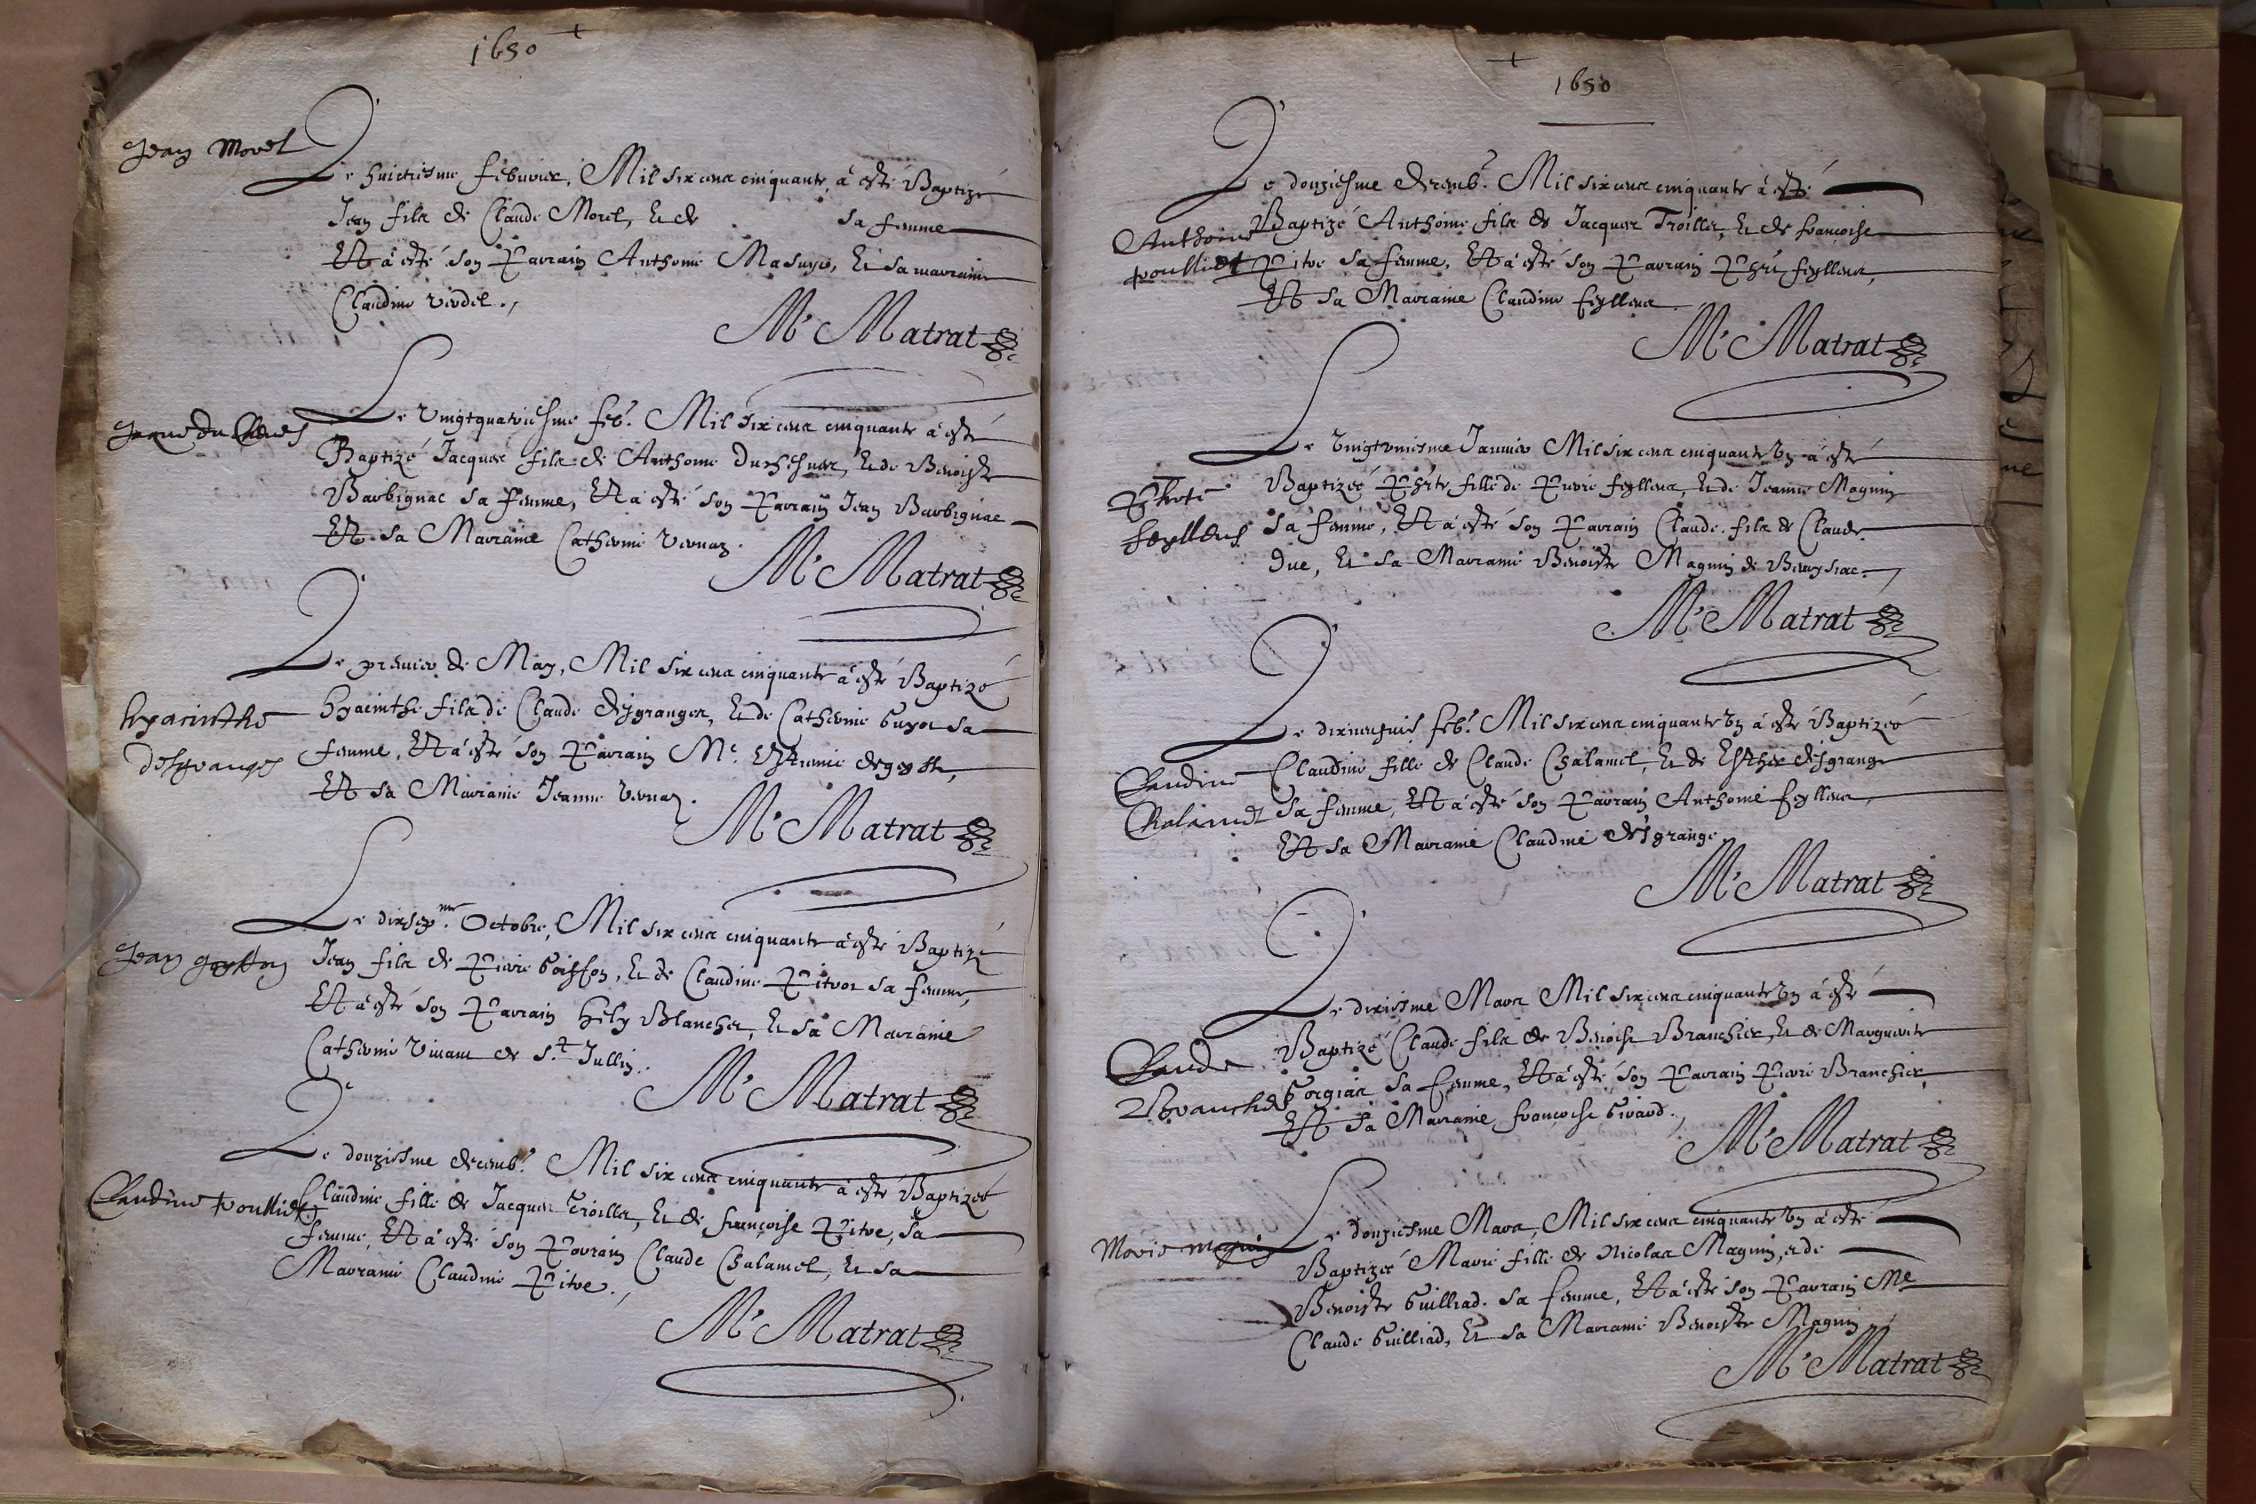 1650
Jean Morel
Le huictiesme febvrier, Mil six cens cinquante, à esté Baptizé
Jean fils de Claude Morel, et de sa femme
Et à esté son Parrain Anthoine Masuyer, Et sa marraine
Claudine Verdel.
Mre Matrat
Le vingtquatriesme feb. Mil six cens cinquante à esté
Baptizé Jacques fils de Anthoine Duchesnes, et de Benoiste
Barbignac sa femme, Et à esté son Parrain Jean Barbignac
Et sa Marraine Catherine Vernaz.
Mre Matrat
Le premier de May, Mil six cens cinquante à esté Baptizé
hyacinthe
Hyacinthe fils de Claude Desgranges, et de Catherine Guyot sa
desgranges
femme, Et à esté son Parrain Me. Estienne
Et sa Marraine Jeanne Vernaz.
Mre Matrat
Le dixsepme. Octobre, Mil six cens cinquante à esté Baptizé
Jean goyffon
Jean fils de Pierre Goiffon, et de Claudine Pitvot sa femme,
Et à esté son Parrain hely Blanchet, et sa Marraine
Catherine Vivant de St. Jullin.
Mre Matrat
Le douziesme decemb. Mil six cens cinquante à esté Baptizée
Claudine trolliet
Claudine fille de Jacques Troillet, et de françoise Pitve, sa
femme, Et à esté son Parrain Claude Chalamel, et sa
Marraine Claudine Pitve.
Mre Matrat
1650
Le douziesme decemb. Mil six cens cinquante à esté
Anthoine
Baptizé Anthoine fils de Jacques Troillet, et de françoise
trolliet
Pitve sa femme, Et à esté son Parrain feylleux,
Et sa Marraine Claudine feylleux
Mre Matrat
Le vingtuniesme Janvier Mil six cens cinquante un à esté
Baptizée fille de Pierre feylleux, et de Jeanne Magnin
feylleus
sa femme, Et à esté son Parrain Claude fils de Claude
Duc, et sa Marraine Benoiste Magnin de
Mre Matrat
Le dixneufvie feb. Mil six cens cinquante un à esté Baptizée
Claudine
Claudine fille de Claude Chalamel, et de Esther desgrange
Chalamel
sa femme, Et à esté son Parrain Anthoine feylleux,
Et sa Marraine Claudine desgrange
Mre Matrat
Le dixiesme Mars Mil six cens cinquante un à esté
Claude
Baptizé Claude fils de Benoist Branchier, et de Marguerite
Branchier
Gorgiat sa femme, Et à esté son Parrain Pierre Branchier,
Et sa Marraine françoise Girard.
Mre Matrat
Marie magnin
Le douziesme Mars, Mil six cens cinquante un à esté
Baptizée Marie fille de Nicolas Magnin, et de
Benoiste Guilliad sa femme, Et à esté son Parrain Me
Claude Guilliad, Et sa Marraine Benoiste Magnin
Mre Matrat